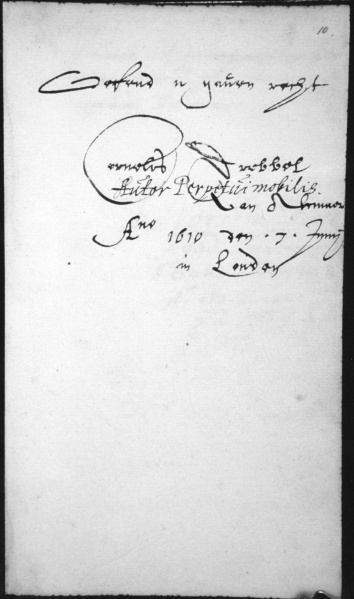 10.
Oeffend u gauen recht
Cornelis Drebbel
Autor Perpetui mobilis.
van Alcmaer
Ano 1610 den . 7 . Junij
in Londen